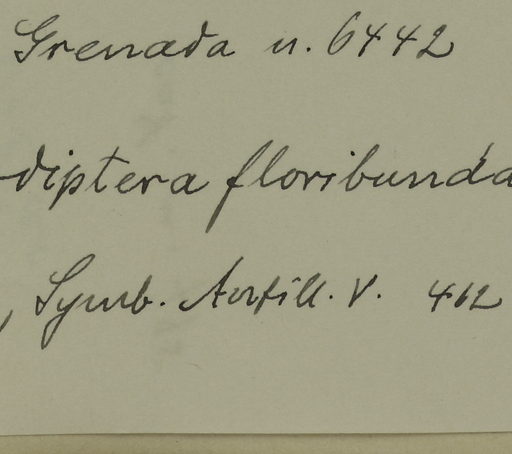 Grenada n. 6442
-diptera floribunda
, Symb. Antill. V. 412